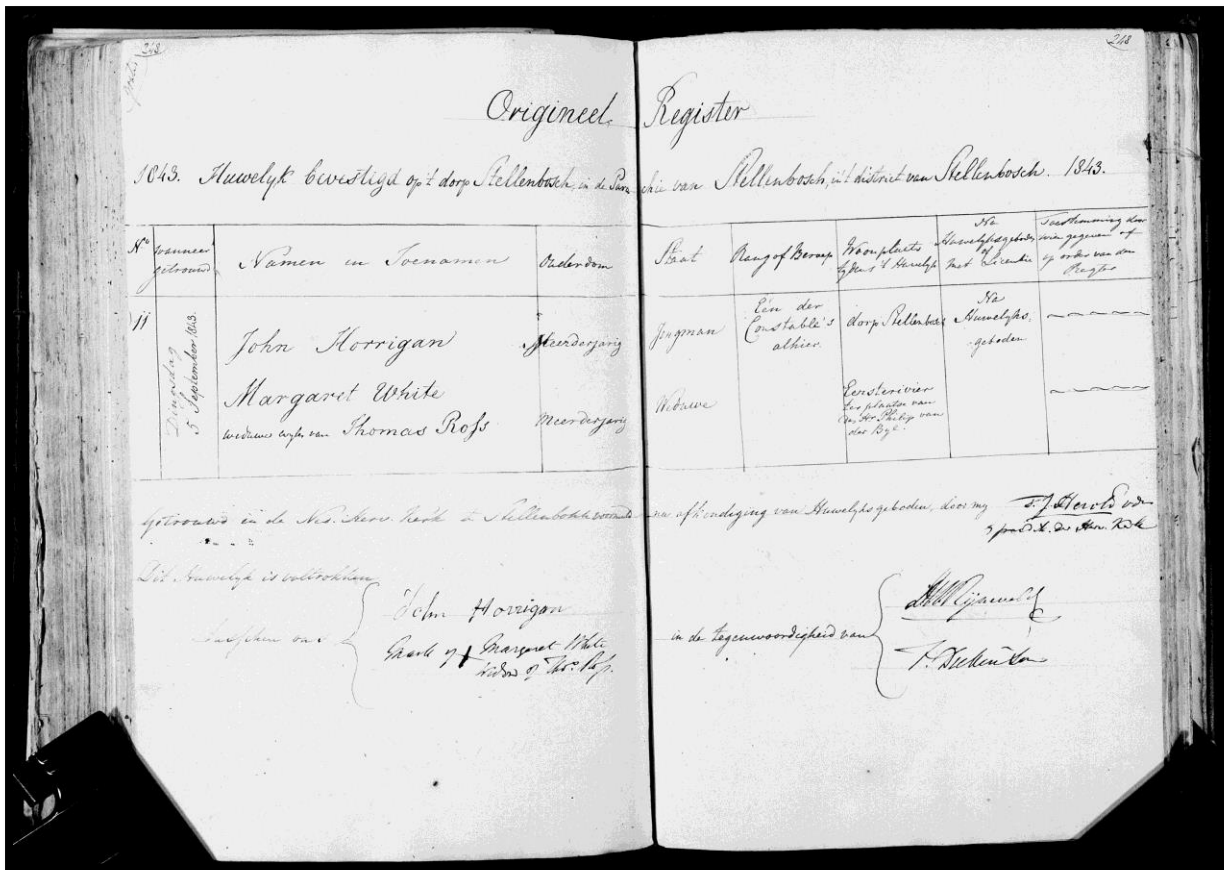 248
gratis
248
Origineel Register
1843. Huwelyk bevestigd op't dorp Stellenbosch, in de Parochie van Stellenbosch, in't district van Stellenbosch. 1843.
No
wanneer getrouwd
Namen en Toenamen
Ouderdom
Staat
Rang of Beroep
Woonplaats tydens 't Huwelyk
Na Huwelyksgeboden of met Licentie
Toestemming door wien gegeven of op order van den Regter
11
Dingsdag
5 September 1843.
John Horrigan
Meerderjarig
Jongman
Een der
Constable's
alhier.
dorp Stellenbosch
Na
Huwelyks
geboden
Margaret White
weduwe wylen van Thomas Ross
Meerderjarig
Weduwe
Eersterivier
ter plaatse van
den Hr Philip van
der Byl.
Getrouwd in de Ned. Herv. Kerk te Stellenbosch voormeld na afkondiging van Huwelyksgeboden, door my T. J. Herold
der Herv. Kerk
Dit Huwelyk is voltrokken
tusschen ons
John Horrigan
Mark of X Margaret White
Widow of Thos. Ross.
in de tegenwoordigheid van